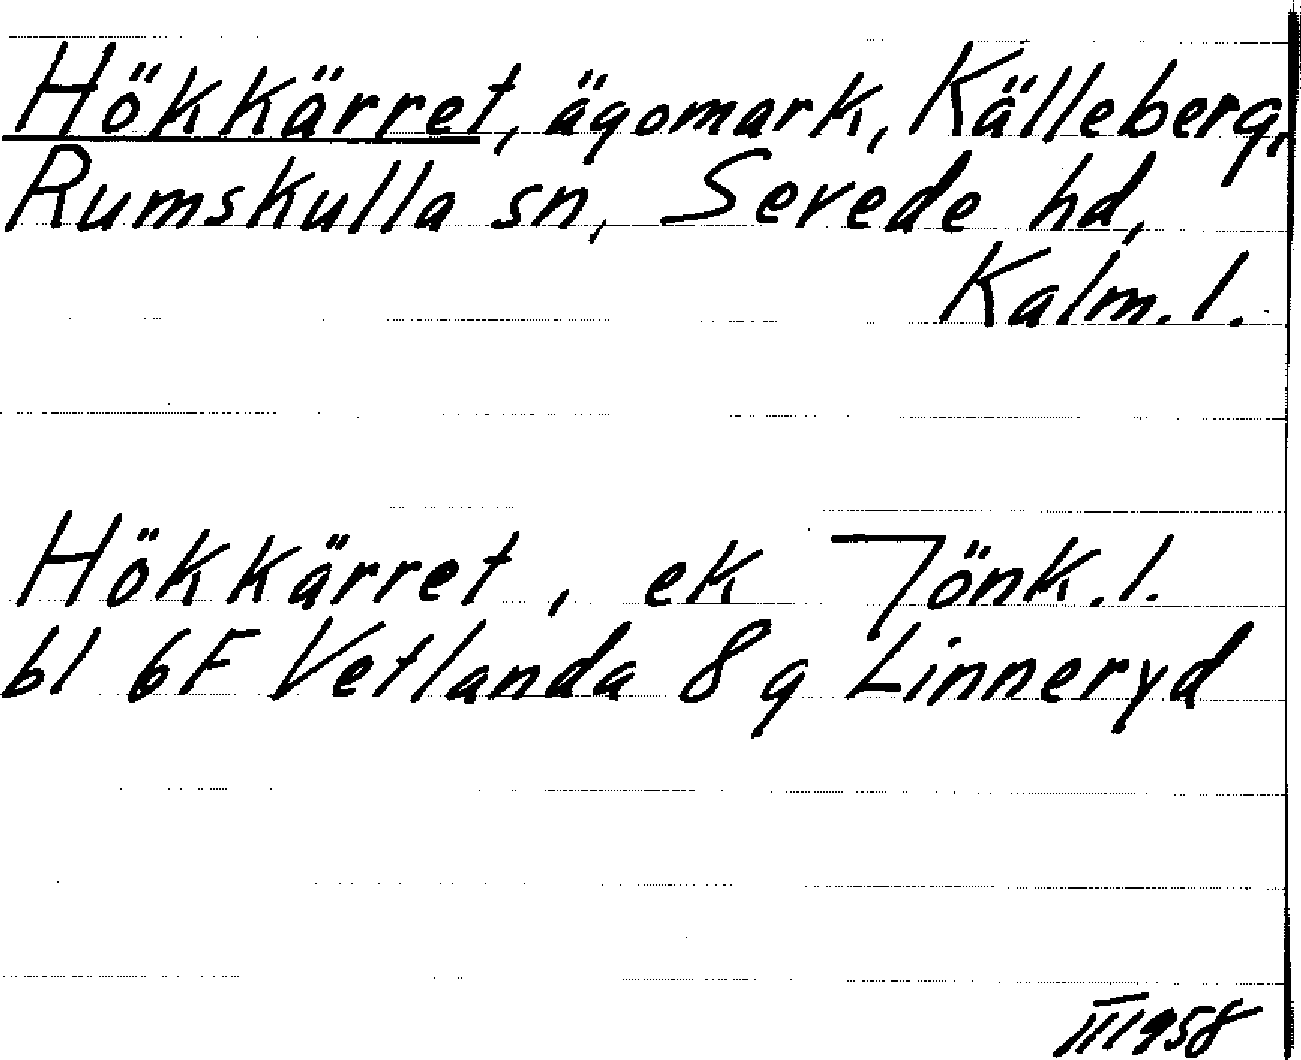 Hökkärret, ägomark, Källeberg,
Rumskulla sn, Sevede hd,
Kalm. l.
Hökkärret, ek Jönk. l.
bl 6F Vetlanda 8g Linneryd
II 1958